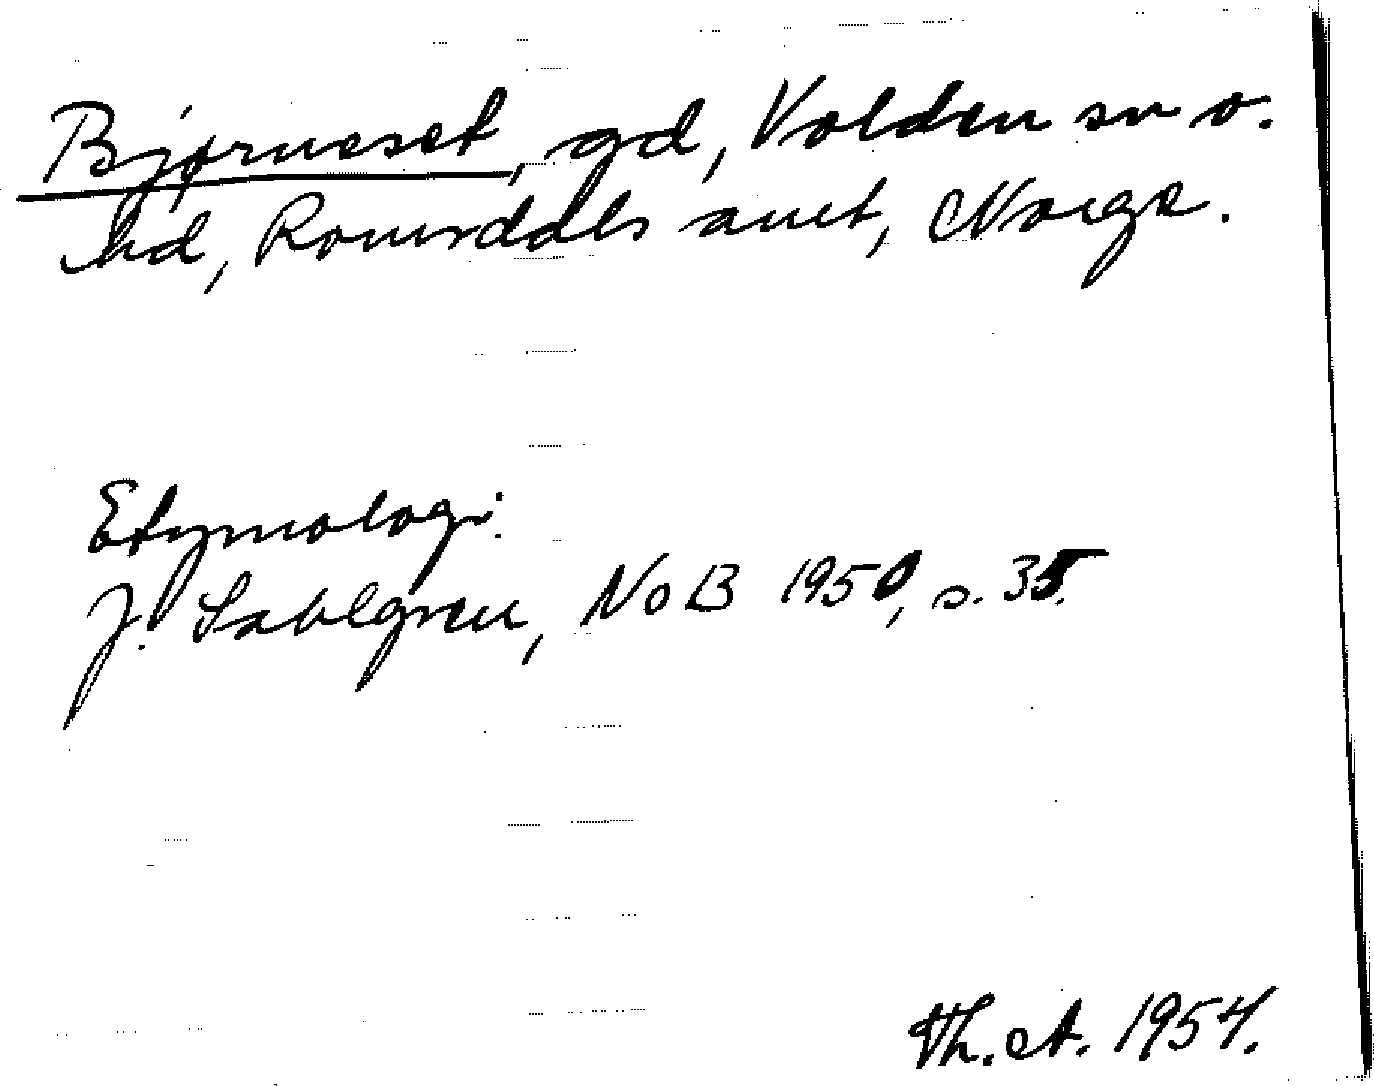 Bjørneset, gd, Volden sn o.
hd, Romsdals amt, Norge.
Etymologi:
J. Sahlgren, NoB 1950, s. 35.
Th. A. 1954.